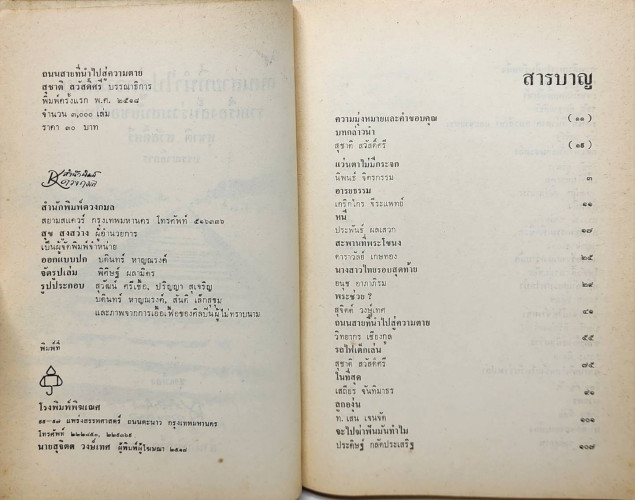 ถนนสายที่นำไปสู่ความตาย
สุชาติ สวัสดิ์ศรี บรรณาธิการ
พิมพ์ครั้งแรก พ.ศ. ๒๕๑๘
จำนวน ๓,๐๐๐ เล่ม
ราคา ๓๐ บาท
สำนักพิมพ์
ดวงกมล
สำนักพิมพ์ดวงกมล
สยามสแควร์ กรุงเทพมหานคร โทรศัพท์ ๕๑๖๓๓๖
สุข สูงสว่าง ผู้อำนวยการ
เป็นผู้จัดพิมพ์จำหน่าย
ออกแบบปก บดินทร์ หาญณรงค์
จัดรูปเล่ม พิศิษฐ์ ผลามิตร
รูปประกอบ สุวัฒน์ ศรีเชื้อ, ปริญญา สุเจริญ
บดินทร์ หาญณรงค์, สันติ เล็กสุขุม
และภาพจากการเอื้อเฟื้อของศิลปินผู้ไม่ทราบนาม
พิมพ์ที่
โรงพิมพ์พิฆเณศ
แพร่งสรรพศาสตร์ ถนนตะนาว กรุงเทพมหานคร
โทรศัพท์
นายสุจิตต์ วงษ์เทศ ผู้พิมพ์ผู้โฆษณา ๒๕๑๘
สารบาญ
ความมุ่งหมายและคำขอบคุณ (๑๑)
บทกล่าวนำ
สุชาติ สวัสดิ์ศรี (๑๕)
แว่นตาไม่มีกระจก
นิพนธ์ จิตรกรรม ๓
อารยธรรม
เกริกไกร จีระแพทย์ ๑๑
หนี
ประพันธ์ ผลเสวก ๑๗
สะพานที่พระโขนง
ดาราวัลย์ เกษทอง ๒๕
นางสาวไทยรอบสุดท้าย
อนุช อาภาภิรม ๒๙
พระช่วย ?
สุจิตต์ วงษ์เทศ ๔๑
ถนนสายที่นำไปสู่ความตาย
วิทยากร เชียงกูล ๕๕
รถไฟเด็กเล่น
สุชาติ สวัสดิ์ศรี ๗๕
ในที่สุด
เสถียร จันทิมาธร ๙๑
ลูกองุ่น
ท. เสน เจนจัด ๑๐๑
จะไปฆ่าฟันมันทำไม
ประดิษฐ์ กลัดประเสริฐ ๑๐๗